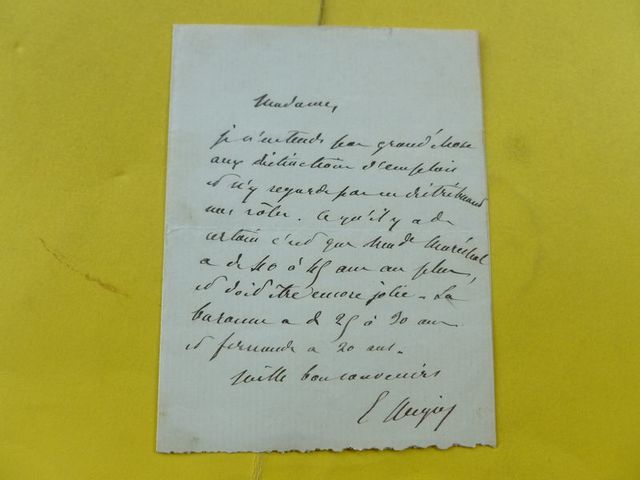 Madame,
je n'entends pas grand'chose
aux distinctions d'emplois
et n'y regarde pas en distribuant
mes rôles. Ce qu'il y a de
certain c'est que Mad.e Maréchal
a de 40 à 45 ans au plus,
et doit être encore jolie. La
baronne a de 25 à 30 ans
et fernande a 20 ans.
mille bons souvenirs
E Augier